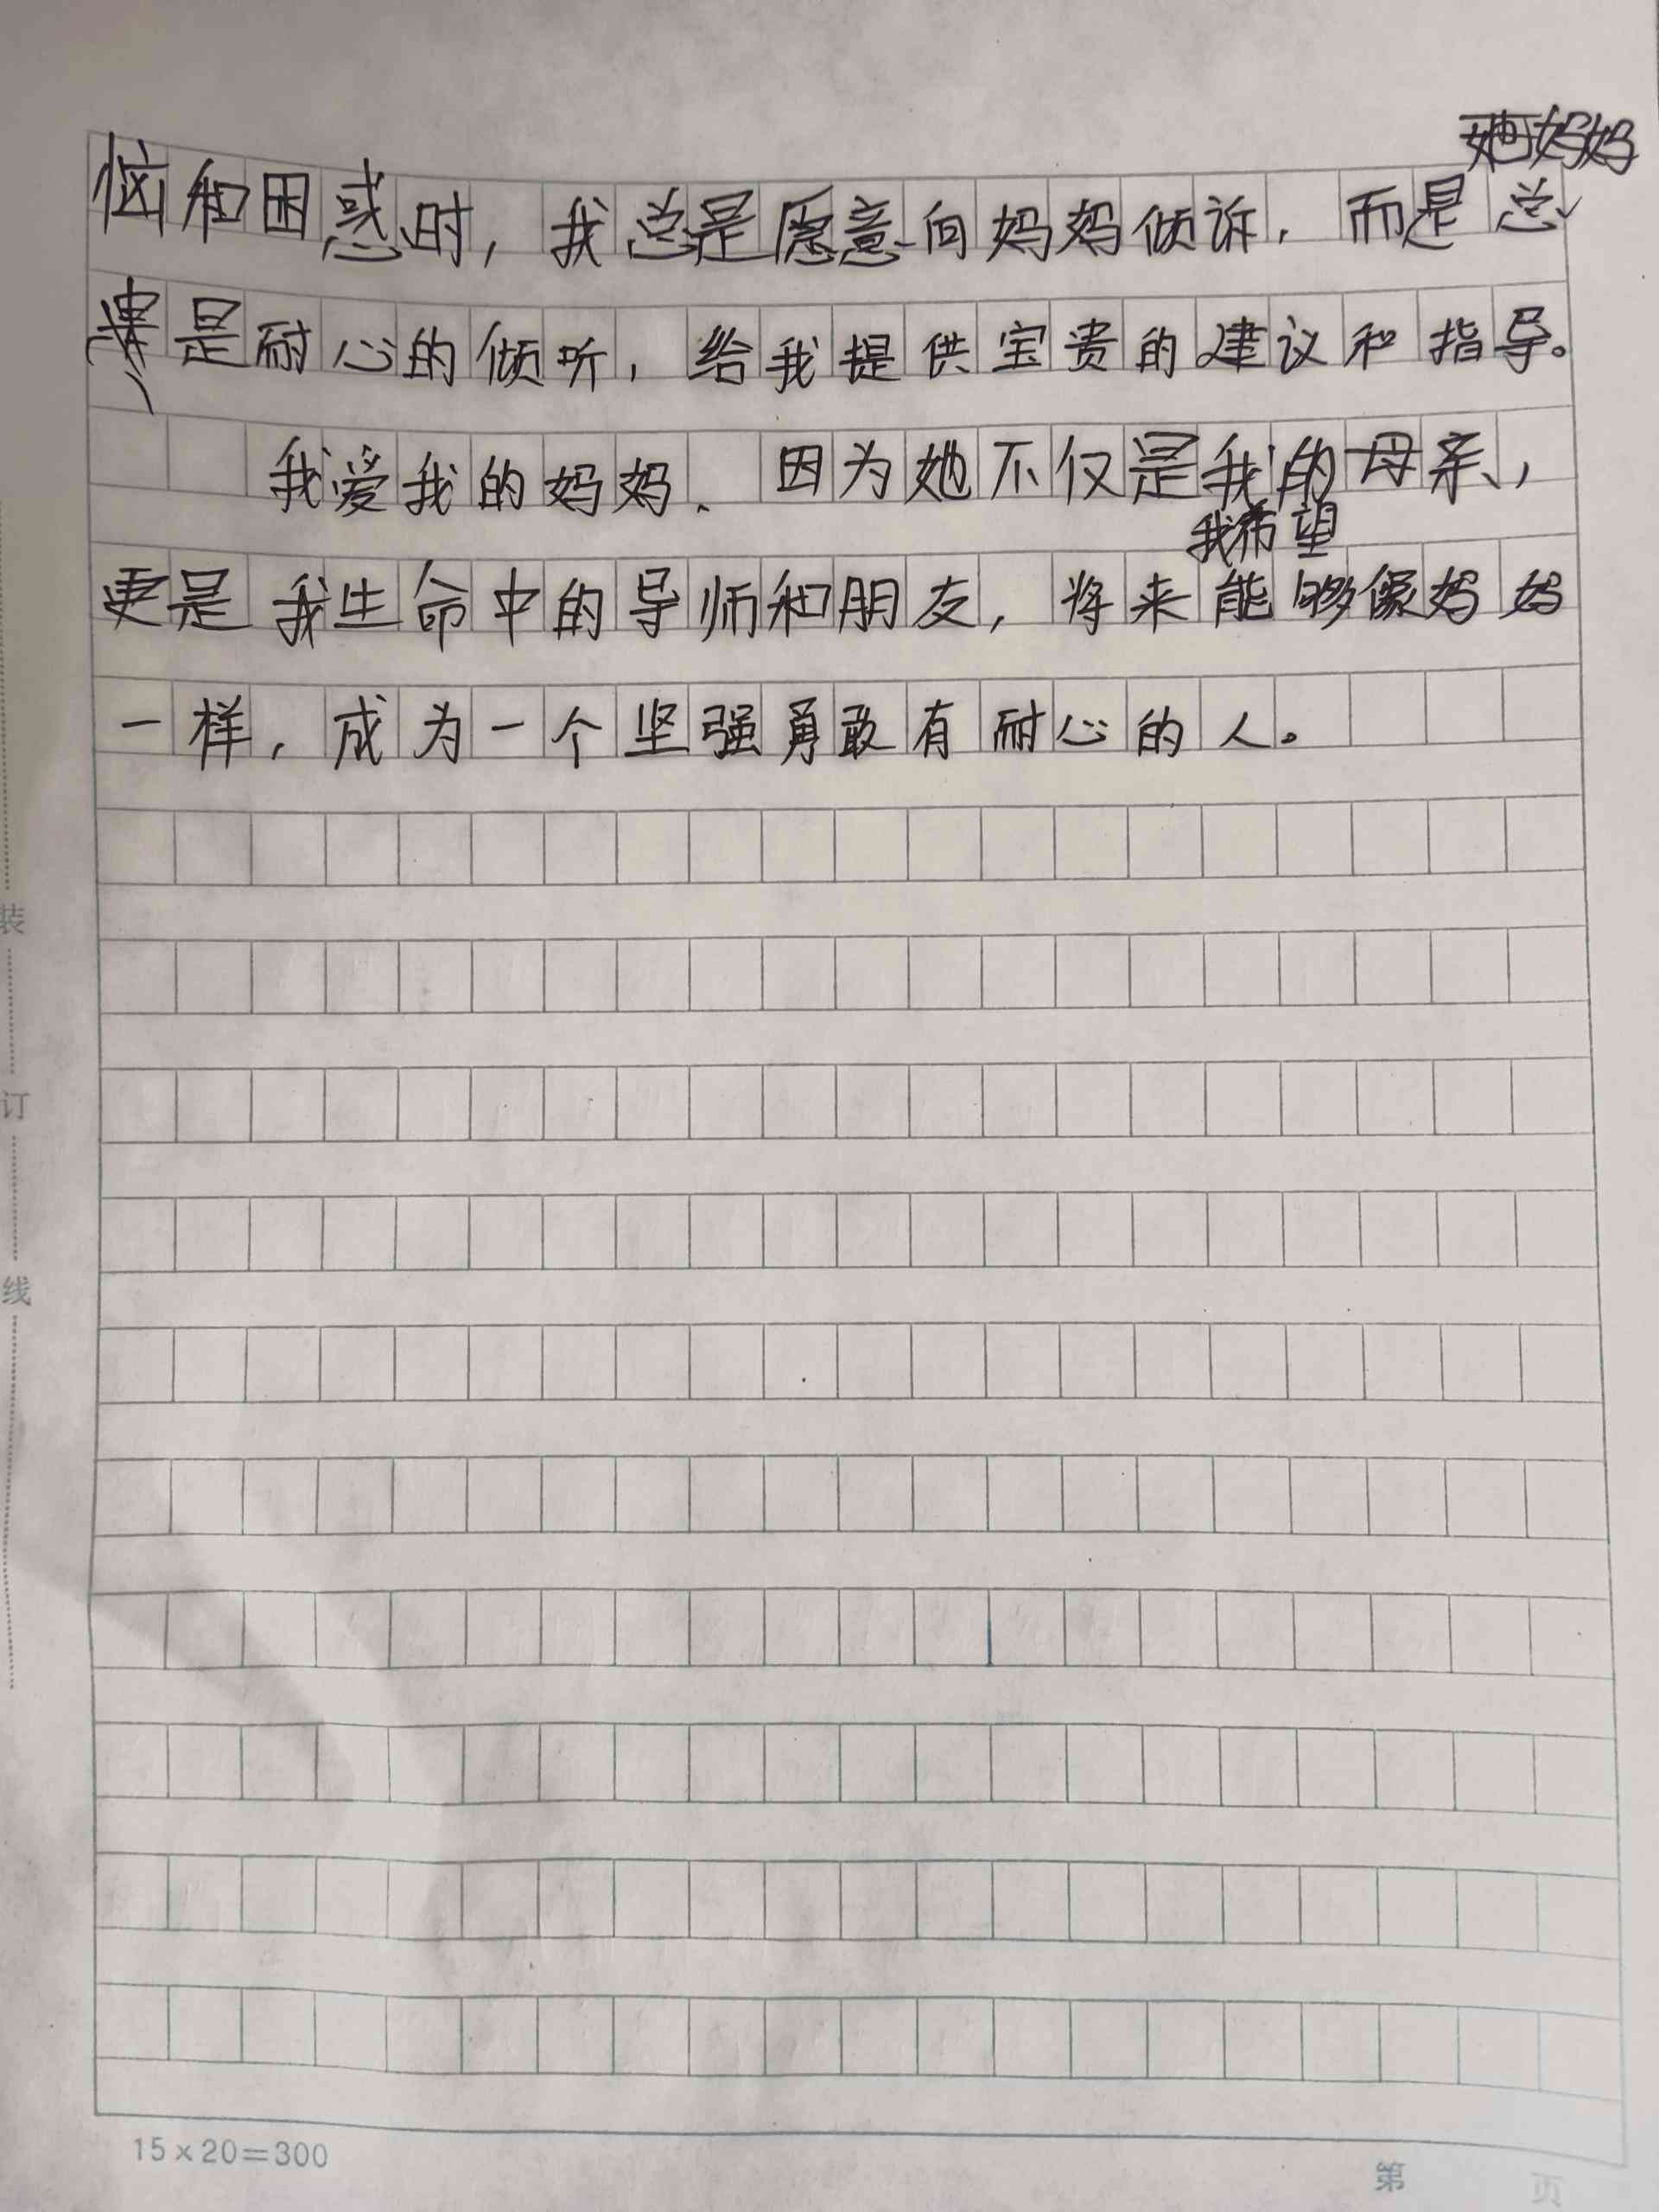 妈妈
恼和困惑时，我总是愿意向妈妈倾诉，而是总
是耐心的倾听，给我提供宝贵的建议和指导。
我爱我的妈妈、因为她不仅是我的母亲，
我希望
更是我生命中的导师和朋友，将来能够像妈妈
一样，成为一个坚强勇敢有耐心的人。
装
订
线
15×20=300
第 页